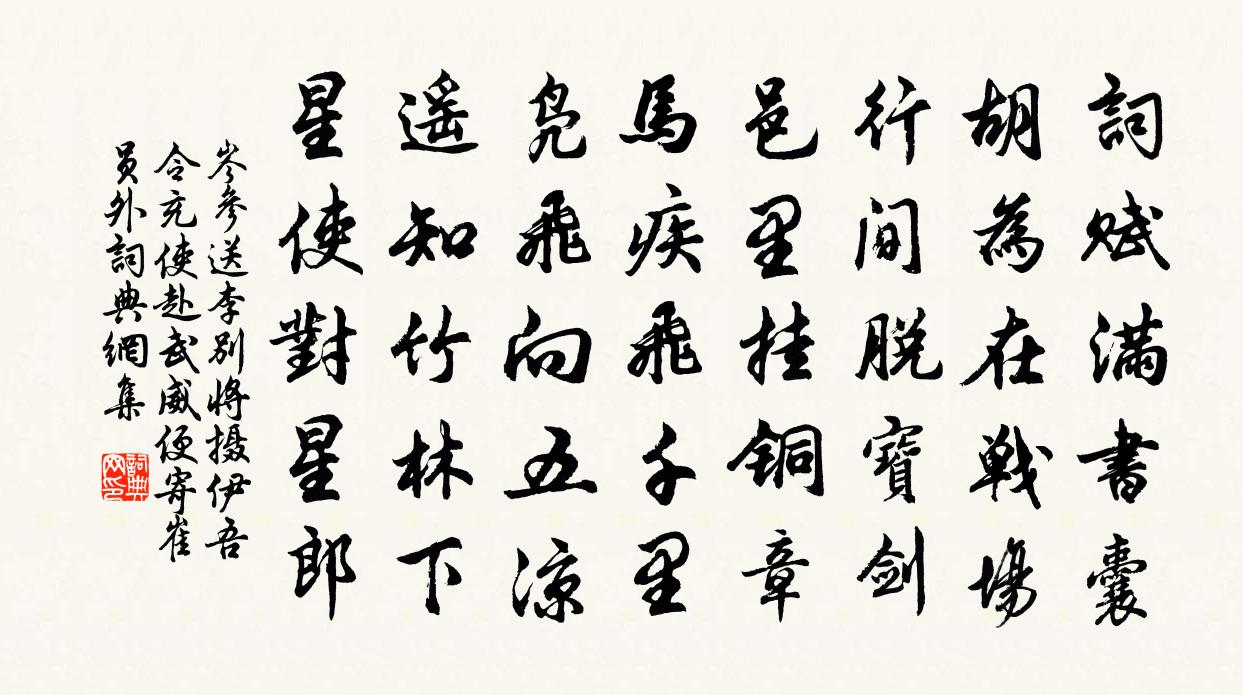 詞賦滿書囊
胡為在戦場
行間脫寶劍
邑里挂銅章
馬疾飛千里
凫飛向五涼
遥知竹林下
星使對星郎
岑參送李別將摄伊吾
令充使赴武威便寄崔
員外詞典網集
詞典网印